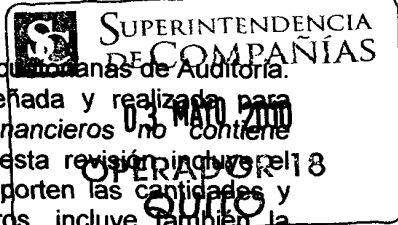 SUPERINTENDENCIA
DE COMPAÑÍAS
de Auditoría.
y realizada para
03 MAYO 2010
no contiene
esta revisión incluye el
OPERADOR 18
porten las cantidades y
QUITO
incluye también la